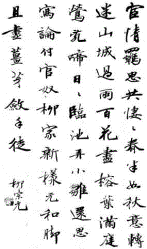 宦情羈思共悽々春半如秋意轉
迷山城過雨百花盡榕葉滿庭
鶯亂啼日々臨池弄小雛還思
寫論付官奴柳家新樣元和脚
且盡薑芽斂手徒
柳宗元